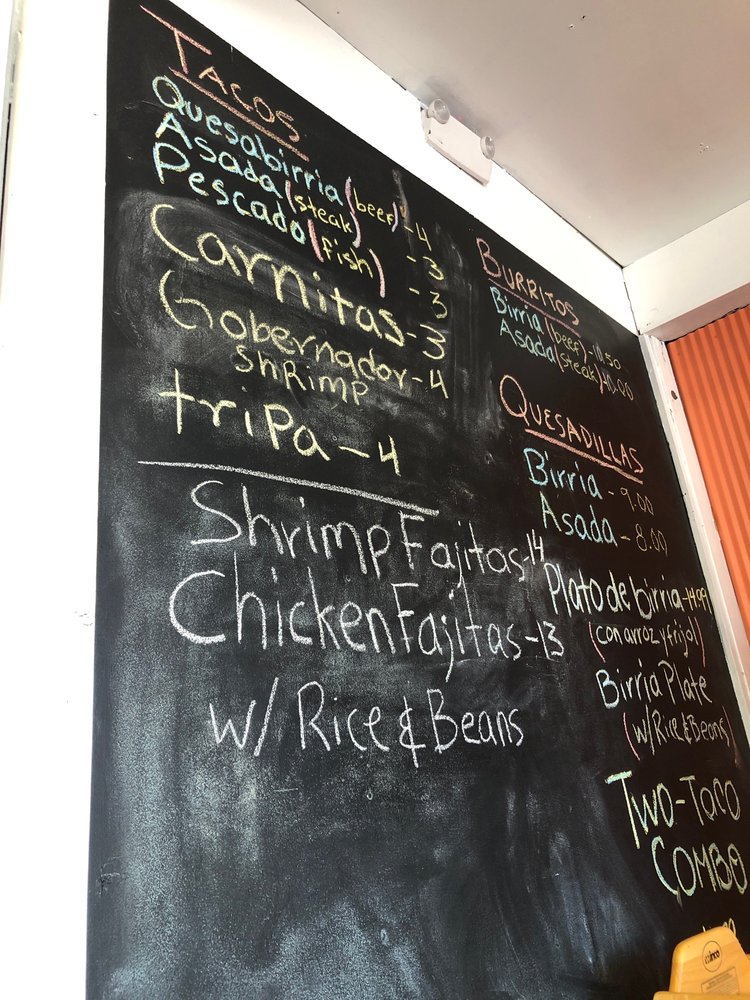 TACOS
Quesabirria (beef) - 4
Asada (steak) - 3
Pescado (fish) - 3
Carnitas - 3
Gobernador - 4
shRimp
triPa - 4
Shrimp Fajitas - 14
Chicken Fajitas - 13
w/ Rice & Beans
BURRITOS
Birria (beef) - 10.50
Asada (steak) - 10.00
QUESADILLAS
Birria - 9.00
Asada - 8.00
Plato de birria - 14.99
(con arroz y frijol)
Birria Plate
(w/ Rice & Beans)
TWO-TACO
COMBO
winco